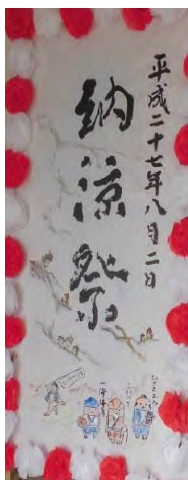 平成二十七年八月二日
納涼祭